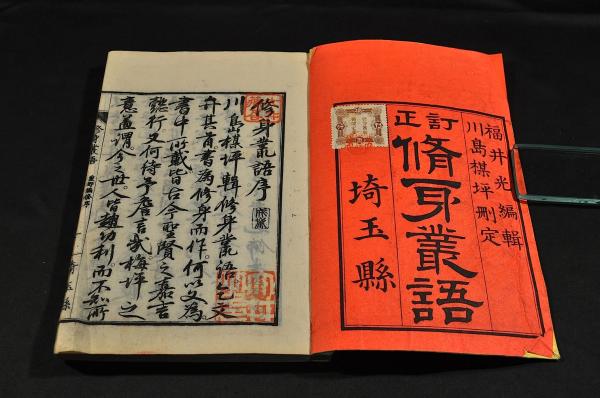 福井光編輯
川島楳坪刪定
訂正
脩身叢語
埼玉縣
修身叢語序
川島楳坪輯修身叢語乞文
弁其首書為修身而作。何以文為
書中所載皆古今聖賢之嘉言
懿行又何待予詹言哉。梅坪之
意蓋謂今之世。人皆趨功利而不知所